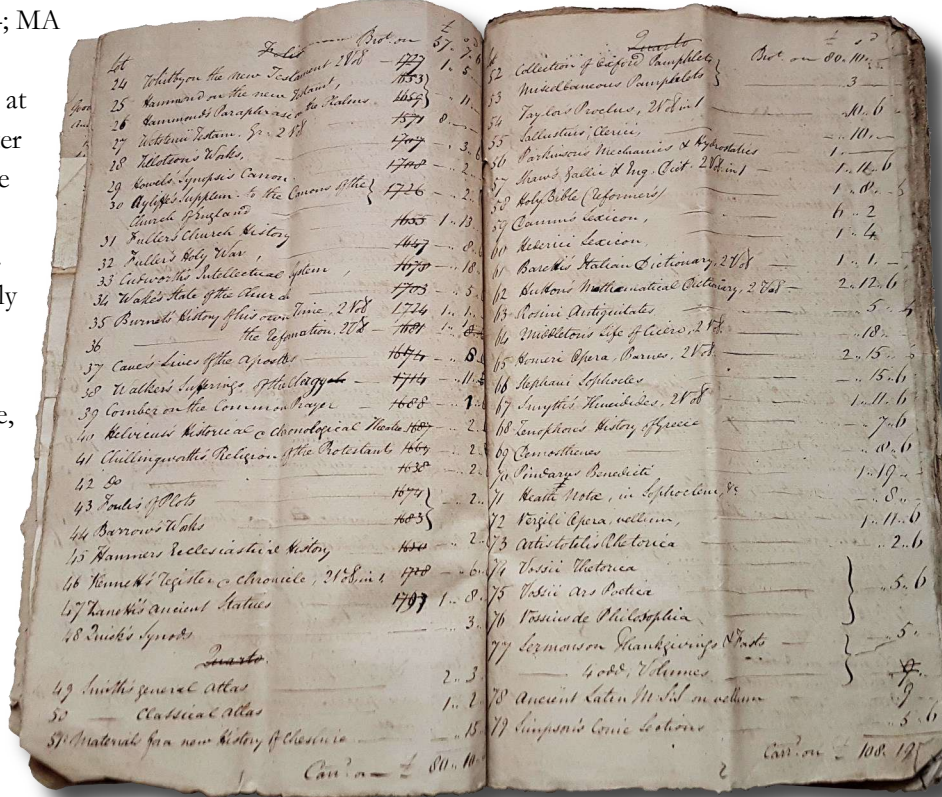 ; MA
at
er
e
ly
e,
Lot Folio Brot. on £ 57.. 7.. 6
24 Whitby on the new Testament 2 Vol — 1727 1.. 5
25 Hammond on the new Testamt, 1653
26 Hammonds Paraphrase on the Psalms. 1659 .. 11
27 Wetstenii Testam. Gr. 2 Vol 8
28 Tillotsons Works, 1707
29 Howel's Synopsis Canon 1708
30 Ayliffe's Supplem. to the Canons of the 1726
Church of England
31 Fuller's Church History 1655 1.. 13
32 Fuller's Holy War, 1647 .. 8
33 Cudworth's Intellectual System, 1678 .. 18
34 Wake's State of the Church 1703 .. 5
35 Burnet's History of his own Time, 2 Vol 1724 1.. 1
36 —— the Reformation, 2 Vol — 1681
37 Cave's Lives of the Apostles
38 Walker's Sufferings of the Clergy — 1714 — .. 11
39 Comber on the Common Prayer — 1688
40 Helvicus' Historical & Chronological Theatre 1687 .. 2
41 Chillingworth's Religion of the Protestants 1664 .. 2
42 Do 1638 .. 2
43 Foulis's Plots 1674
44 Barrow's Works 1683 .. 2
45 Hanmer's Ecclesiastical History .. 2
46 Kennett's Register & Chronicle, 2 Vol in 1, 1728 .. 6
47 Zanetti's Ancient Statues 1.. 8
48 Quick's Synods 3
Quarto
49 Smith's general Atlas 2.. 3
50 — Classical Atlas 1.. 2
51 Materials for a new History of Cheshire .. 15
Carrd. on — £ 80.. 10
Quarto £ s d
52 Collection of Oxford Pamphlets Brot. on 80.. 10
53 Miscellaneous Pamphlets 3
54 Taylors Proclus, 2 Vol in 1 10.. 6
55 Sallustii Clerici, .. 10
56 Parkinson's Mechanics & Hydrostatics 1
57 Shaw's Gallic & Eng. Dict. 2 Vol. in 1 1.. 11.. 6
58 Holy Bible (Reformers) 1.. 8
59 Damm's Lexicon, 6.. 2
60 Hederici Lexicon, 1.. 4
61 Baretti's Italian Dictionary, 2 Vol 1.. 1
62 Hutton's Mathematical Dictionary, 2 Vol — 2.. 12.. 6
63 Rosini Antiquitates — 5
64 Middleton's Life of Cicero, 2 Vol. — .. 18
65 Homeri Opera, Barnes, 2 Vol. — 2.. 15
66 Stephani Sophocles .. 15.. 6
67 Smyth's Thucidides, 2 Vol 1.. 11.. 6
68 Zenophon's History of Greece .. 7.. 6
69 Demosthenes .. 8.. 6
70 Pindarus Benedicti 1.. 19
71 Heath Notæ, in Sophoclem, &c .. 8
72 Vergili Opera, vellum, 1.. 11.. 6
73 Aristotelis Rhetorica .. 2.. 6
74 Vossii Rhetorica
75 Vossii Ars Poetica .. 5.. 6
76 Vossius de Philosophia
77 Sermons on Thanksgivings & Fasts .. 5
4 odd, Volumes
78 Ancient Latin M.SS. on vellum 9
79 Simpson's Conic Sections .. 5.. 6
2 Carrd. on £ 108.. 19